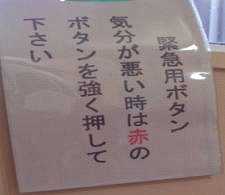 緊急用ボタン
気分が悪い時は赤の
ボタンを強く押して
下さい